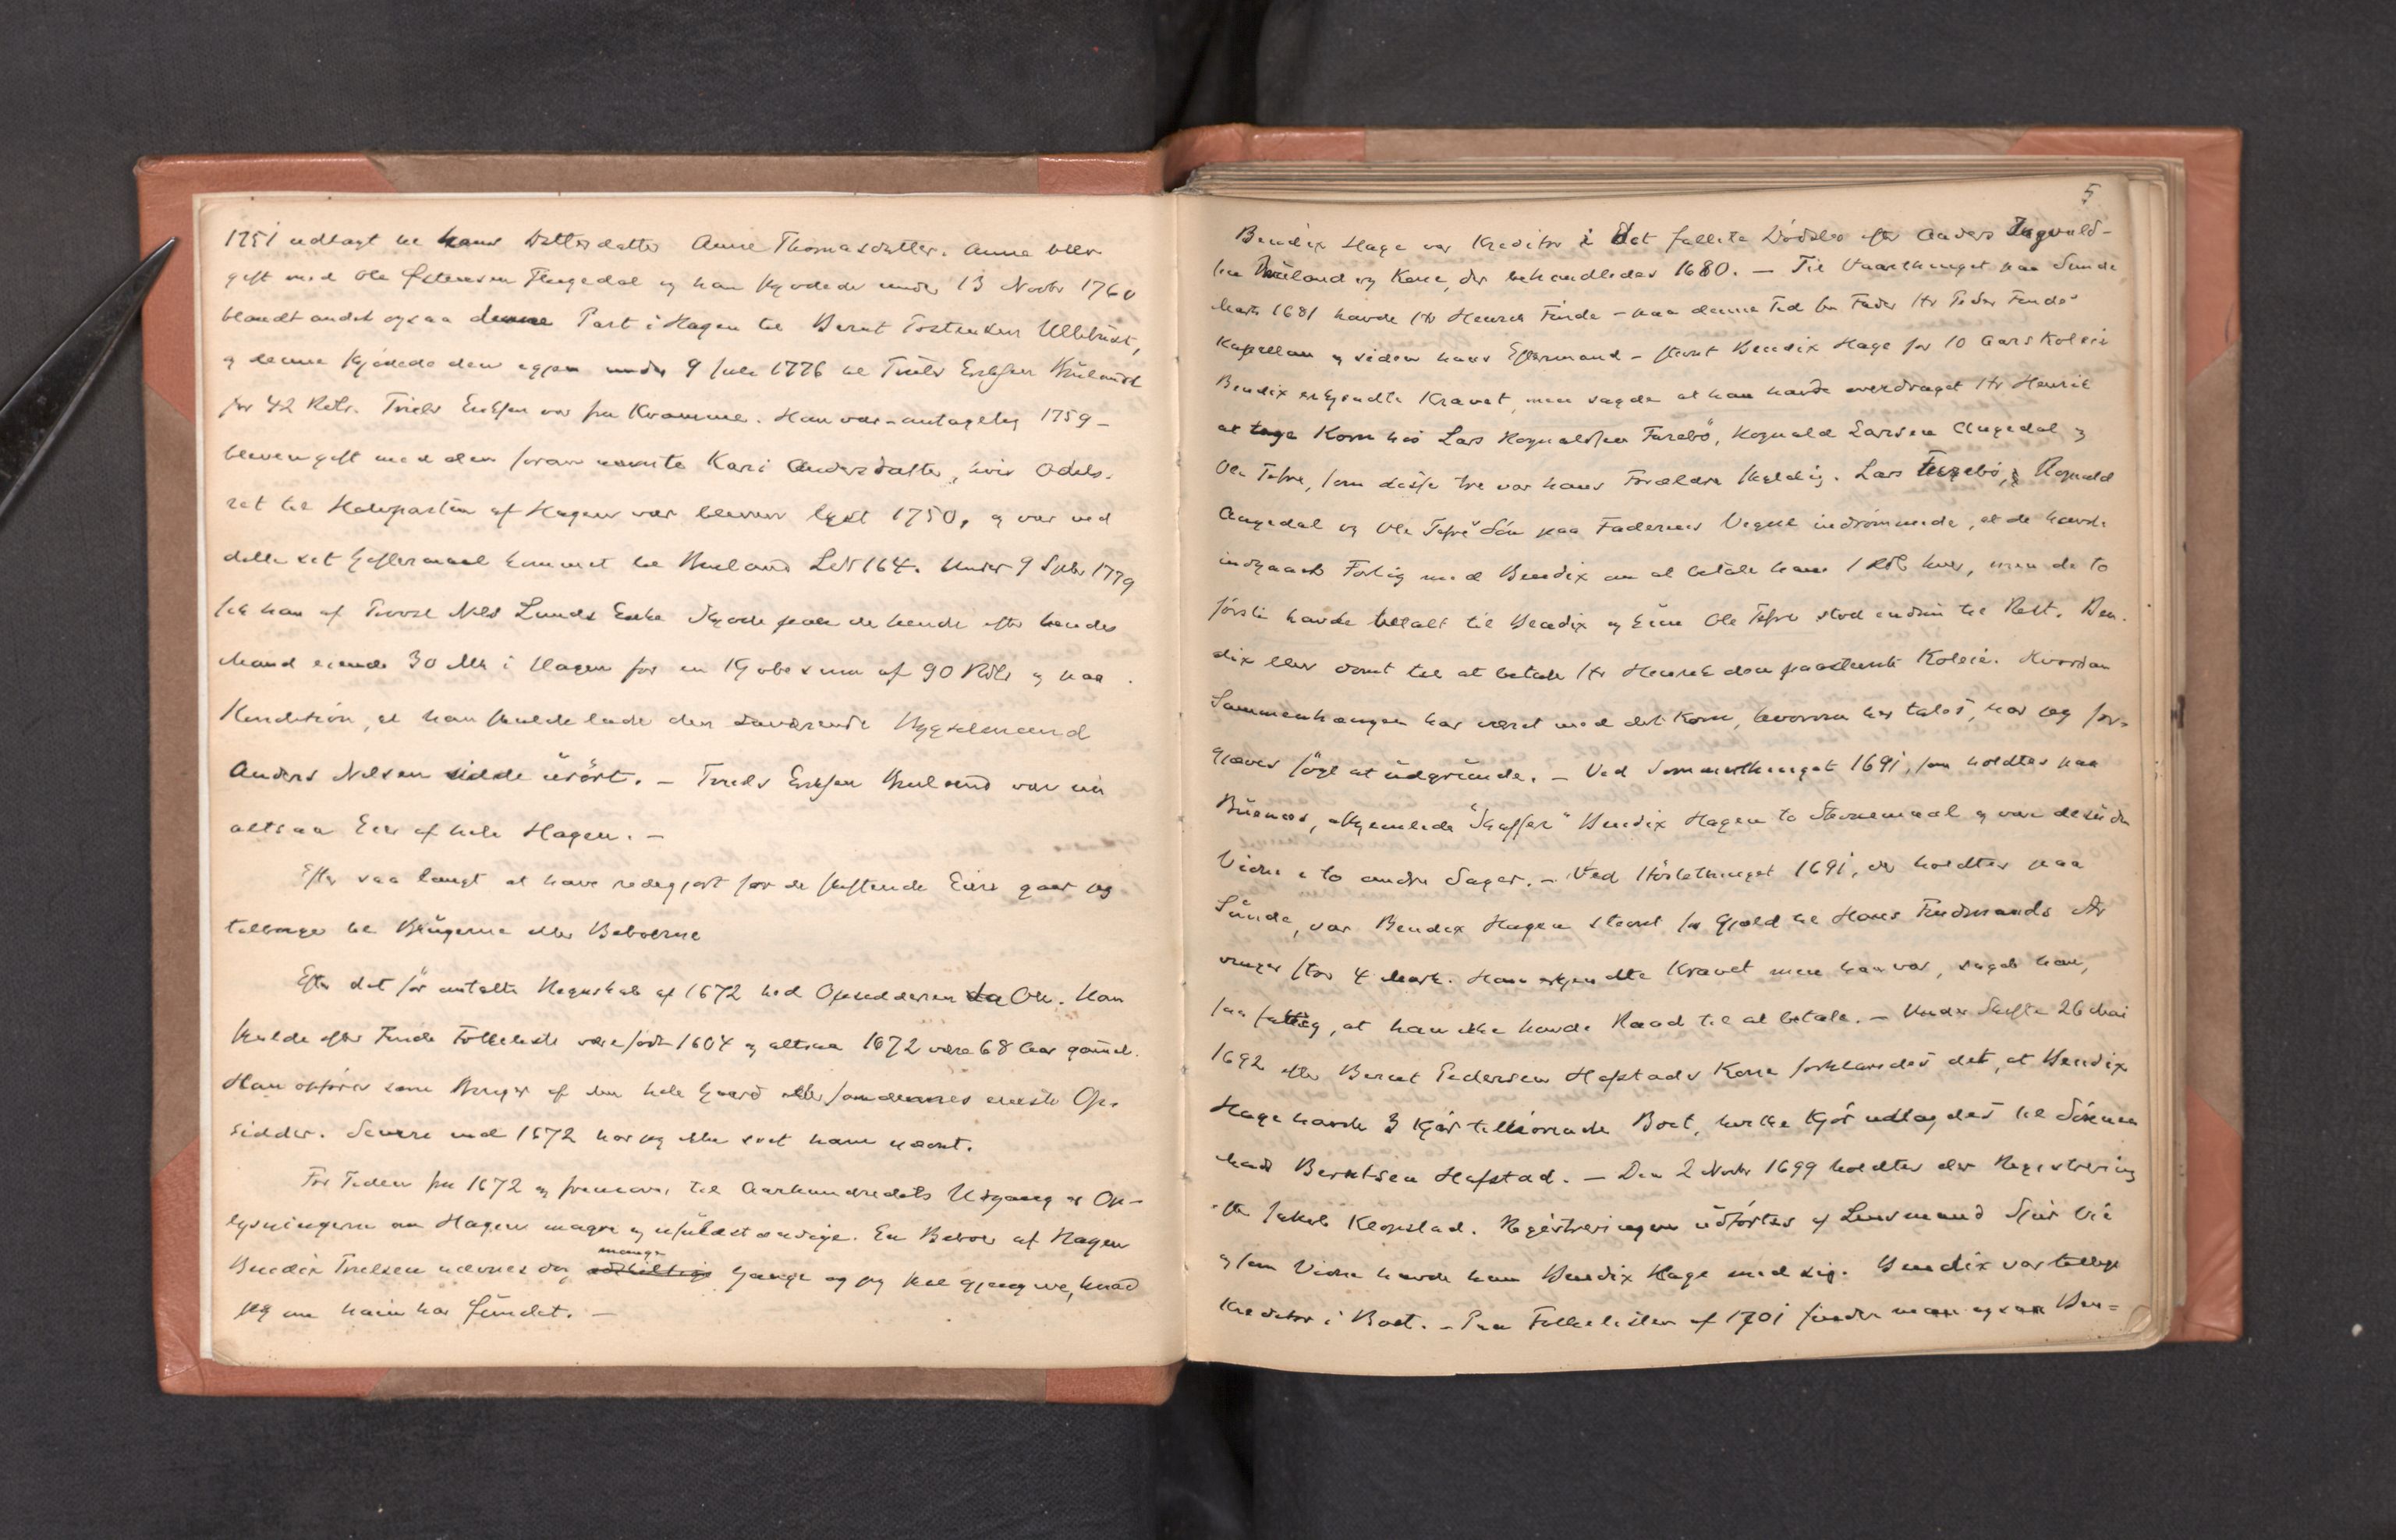 1751 udlagt til hans Datterdatter Anne Thomasdatter. Anne blev
gift med Ole Østensen Flugedal og han skjødede under 13 Novbr 1760
blandt andet ogsaa denne Part i Hagen til Bernt Tostensen Ulltvudt,
og denne skjødede den igjen under 9 Juli 1776 til Truls Eriksen Huland
for 42 Rdlr. Truls Eriksen var fra Kvamme. Han var – antagelig 1759 –
bleven gift med den foran nævnte Kari Andersdatter, hvis Odels-
ret til Halvparten af Hagen var bleven lyst 1750, og var ved
dette sit Giftermaal kommet til Huland LN 164. Under 9 Septbr 1779
fik han af Provst Nils Lunds Enke Skjøde paa de hende efter hendes
Mand eiende 30 Mk i Hagen for en Kjøbesum af 90 Rdlr og paa
Kondition, at han skulde lade den daværende Bygselmand
Anders Nilsen sidde urørt. – Truls Eriksen Huland var nu
altsaa Eier af hele Hagen. –
Efter saa langt at have redegjort for de skiftende Eiere gaar jeg
tilbage til Brugerne eller Beboerne
Efter det før omtalte Regnskab af 1672 hed Opsidderen da Ole. Han
skulde efter Førde Folkeliste være født 1604 og altsaa 1672 være 68 Aar gammel.
Han opføres som Bruger af den hele Gaard eller som dennes eneste Op-
sidder. Senere end 1672 har jeg ikke seet ham nævnt.
For Tiden fra 1672 og fremover til Aarhundredets Udgang er Op-
lysningerne om Hagen magre og ufuldstændige. En Beboer af Hagen
mange
Bendix Truelsen nævnes dog adskillige Gange og jeg skal gjengive, hvad
jeg om ham har fundet. –
5
Bendix Hage var Kreditor i det fallite Dødsbo efter Anders Ingvald-
sen Huland og Kone, der behandledes 1680. – Til Vaarthinget paa Sunde
Marts 1681 havde Hr Henrik Finde – paa denne Tid sin Fader Hr Peder Findes
Kapellan og siden hans Eftermand – stevnt Bendix Hage for 10 Aars Koleie
Bendix erkjendte Kravet, men sagde at han havde overdraget Hr Henrik
at tage Korn hos Lars Rognaldsen Farsbø, Rognald Larsen Angedal og
Ole Tefre, som disse tre var hans Forældre skyldig. Lars Farsebø, Rognald
Angedal og Ole Tefres Søn paa Faderens Vegne indrømmede, at de havde
indgaaet Forlig med Bendix om at betale ham 1 Rdl hver, men de to
første havde betalt til Bendix og kun Ole Tefre stod endnu til Rest. Ben-
dix blev dømt til at betale Hr Henrik den paastevnte Koleie. Hvordan
Sammenhængen har været med det Korn, hvorom her tales, har jeg for-
gjæves søgt at udgrunde. – Ved Sommerthinget 1691, som holdtes paa
Bruenæs, afhjemlede "Skaffer" Bendix Hagen to Stevnemaal og var desuden
Vidne i to andre Sager. – Ved Høstethinget 1691, der holdtes paa
Sunde, var Bendix Hagen stevnt for Gjæld til Hans Findmands Ar-
vinger stor 4 Mark. Han erkjendte Kravet men han var, sagde han,
saa fattig, at han ikke havde Raad til at betale. – Under Skifte 26 Mai
1692 efter Bernt Pedersen Hafstads Kone forklaredes det, at Bendix
Hage havde 3 Kjør tilhørende Boet, hvilke Kjør udlagdes til Sønnen
Mads Berntsen Hafstad. – Den 2 Novbr 1699 holdtes der Registrering
efter Jakob Klopstad. Registreringen udførtes af Lensmand Sjur Vie
og som Vidne havde han Bendix Hage med sig. Bendix var tillige
Kreditor i Boet. – Paa Folkelisten af 1701 finder man ogsaa Ben-